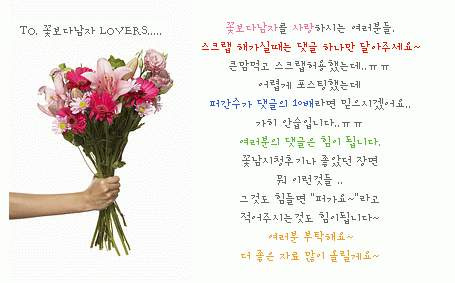 TO. 꽃보다남자 LOVERS.....
꽃보다남자를 사랑하시는 여러분들.
스크랩 해가실때는 댓글 하나만 달아주세요~
큰맘먹고 스크랩허용했는데..ㅠㅠ
어렵게 포스팅했는데
퍼간수가 댓글의 10배라면 믿으시겠어요..
가히 안습입니다..ㅠㅠ
여러분의 댓글은 힘이 됩니다.
꽃남시청후기나 좋았던 장면
뭐 이런것들 ..
그것도 힘들면 "퍼가요~"라고
적어주시는것도 힘이됩니다~
여러분 부탁해요~
더 좋은 자료 많이 올릴게요~